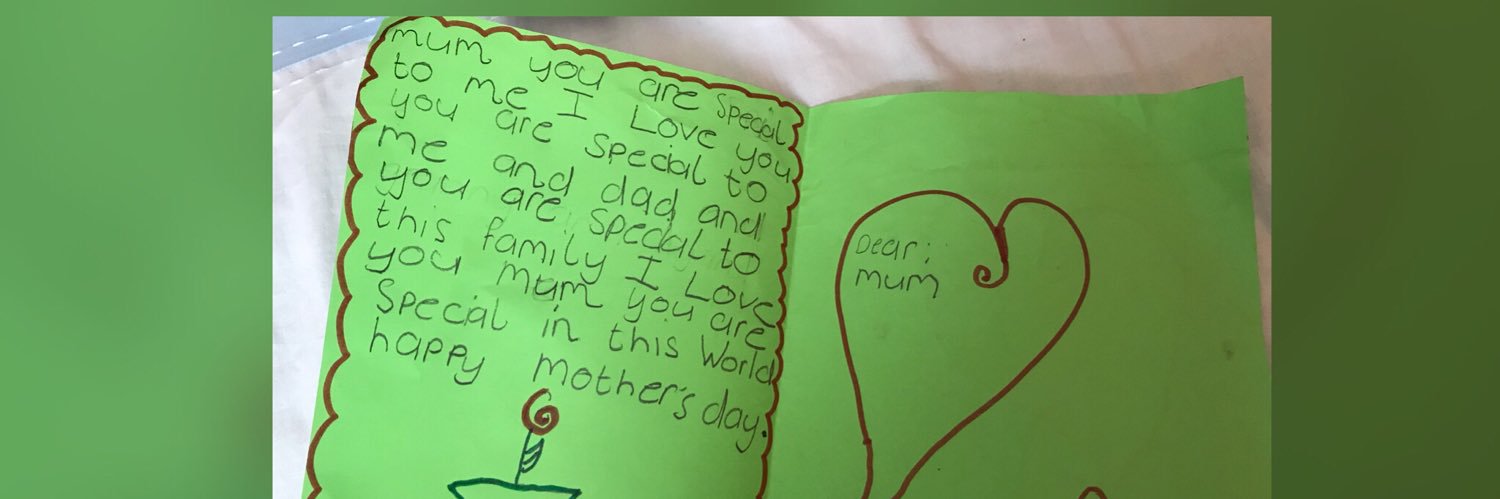 mum you are special
to me I Love you
you are special to
me and dad and
you are special to
this family I Love
you mum you are
special in this World
happy mother's day.
Dear:
mum